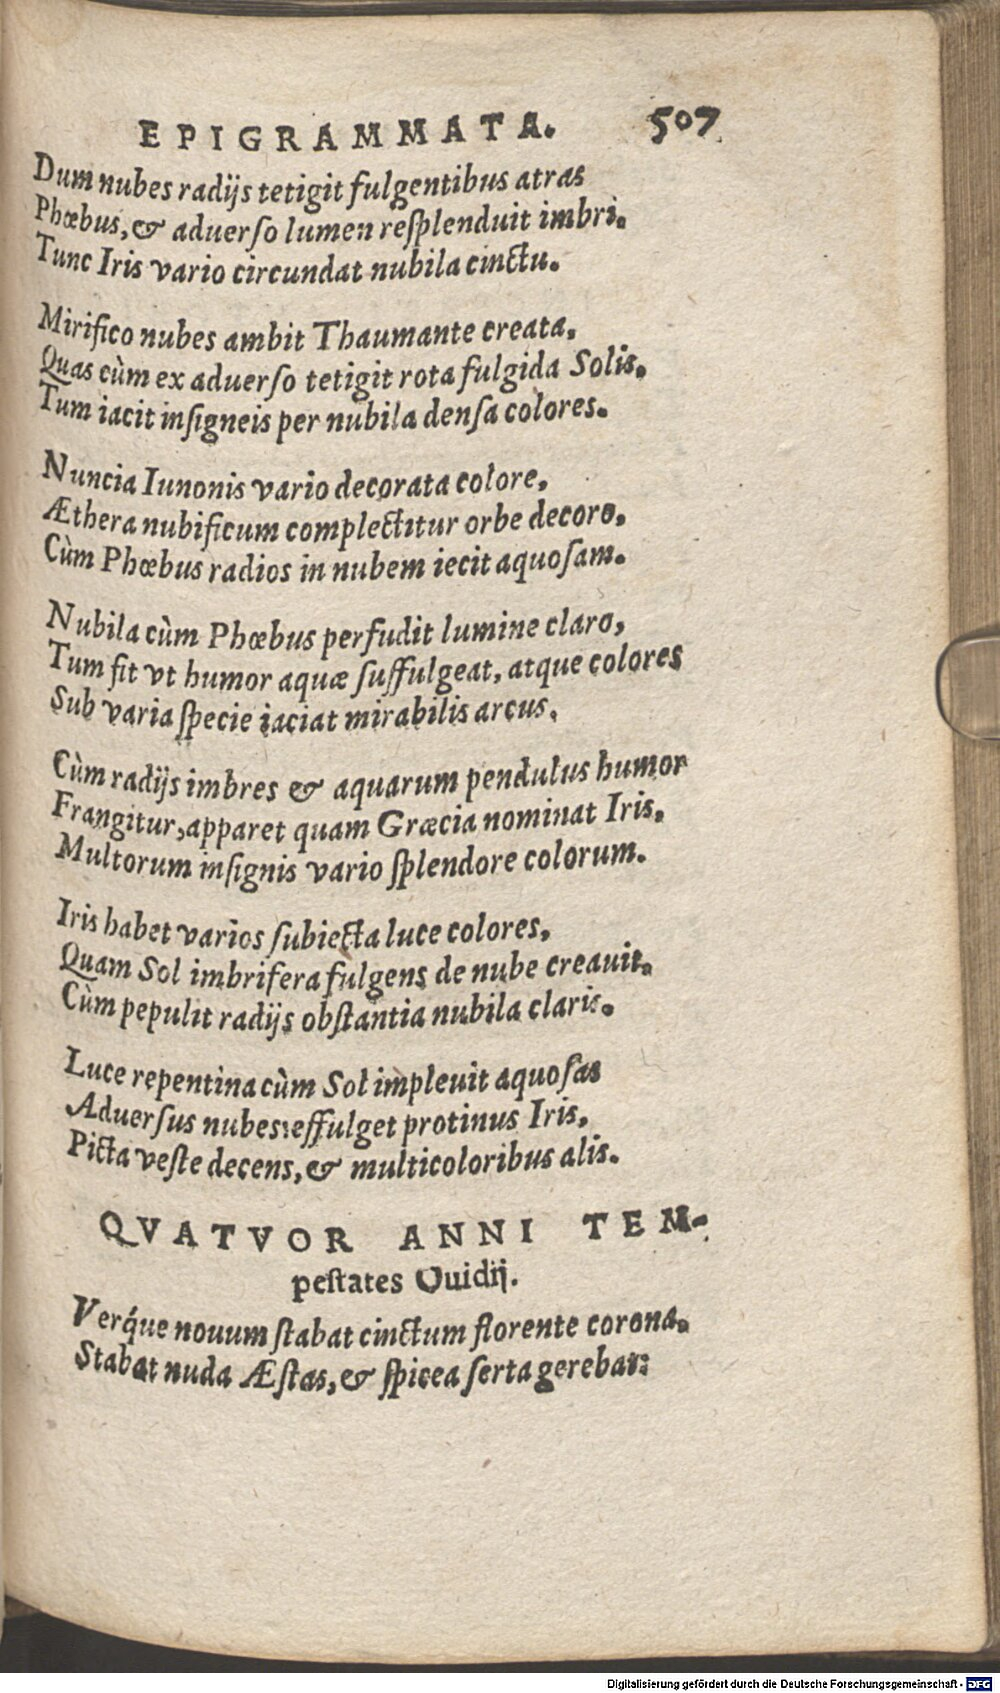 EPIGRAMMATA. 507
Dum nubes radijs tetigit fulgentibus atras
Phœbus, & aduerſo lumen reſplenduit imbri.
Tunc Iris vario circundat nubila cinctu.
Mirifico nubes ambit Thaumante creata,
Quas cùm ex aduerſo tetigit rota fulgida Solis.
Tum iacit inſigneis per nubila denſa colores.
Nuncia Iunonis vario decorata colore,
Æthera nubificum complectitur orbe decoro,
Cùm Phœbus radios in nubem iecit aquoſam.
Nubila cùm Phœbus perfudit lumine claro,
Tum fit vt humor aquæ ſuffulgeat, atque colores
Sub varia ſpecie iaciat mirabilis arcus.
Cùm radijs imbres & aquarum pendulus humor
Frangitur, apparet quam Græcia nominat Iris,
Multorum inſignis vario ſplendore colorum.
Iris habet varios ſubiecta luce colores,
Quam Sol imbrifera fulgens de nube creauit.
Cùm pepulit radijs obſtantia nubila claris.
Luce repentina cùm Sol impleuit aquoſas
Aduerſus nubes: effulget protinus Iris,
Picta veſte decens, & multicoloribus alis.
QVATVOR ANNI TEM-
peſtates Ouidij.
Verq́ue nouum ſtabat cinctum florente corona.
Stabat nuda Æſtas, & ſpicea ſerta gerebat:
Digitalisierung gefördert durch die Deutsche Forschungsgemeinschaft - DFG